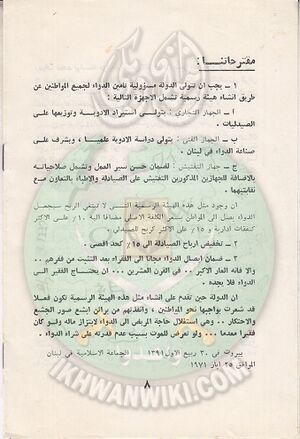 مقترحاتنا :
١ ـ يجب ان تتولى الدولة مسؤولية تأمين الدواء لجميع المواطنين عن
طريق انشاء هيئة رسمية تشمل الاجهزة التالية :
أ ـ الجهاز التجاري : يتولى استيراد الادوية وتوزيعها على
الصيدليات .
ب ـ الجهاز الفني : يتولى دراسة الادوية علميا ، ويشرف على
صناعة الدواء في لبنان .
ج ـ جهاز التفتيش : لضمان حسن سير العمل وتشمل صلاحياته
بالاضافة للجهازين المذكورين التفتيش على الصيادلة والاطباء بالتعاون مع
نقابتيهما .
ان وجود مثل هذه الهيئة الرسمية التي لا تبتغي الربح سيجعل
الدواء يصل الى المواطن بسعر الكلفة الاصلي مضافا اليه ١٠٪ على الاكثر
كنفقات ادارية و ١٥٪ على الاكثر كربح للصيدلي .
٢ ـ تخفيض ارباح الصيدالة الى ١٥٪ كحد اقصى .
٣ ـ ضمان ايصال الدواء مجانا الى الفقراء بعد التثبت من فقرهم ..
والا فانه العار الاكبر .. في القرن العشرين ... ان يحتاج الفقير الى
الدواء فلا يجده .
ان الدولة حين تقدم على انشاء مثل هذه الهيئة الرسمية تكون فعلا
قد شعرت بواجبها نحو المواطنين ، وانقذتهم من براثن ابشع صور الجشع
والاحتكار .. وهي استغلال حاجة المريض الى الدواء لابتزاز ماله ولو كان
فقيرا معدما ـ ولو تعرض للموت بسبب عدم قدرته على شراء الدواء .
بيروت في ٣٠ ربيع الاول ١٣٩١ الجماعة الاسلامية في لبنان
الموافق ٢٥ ايار ١٩٧١
٨
IKHWANWIKI.COM